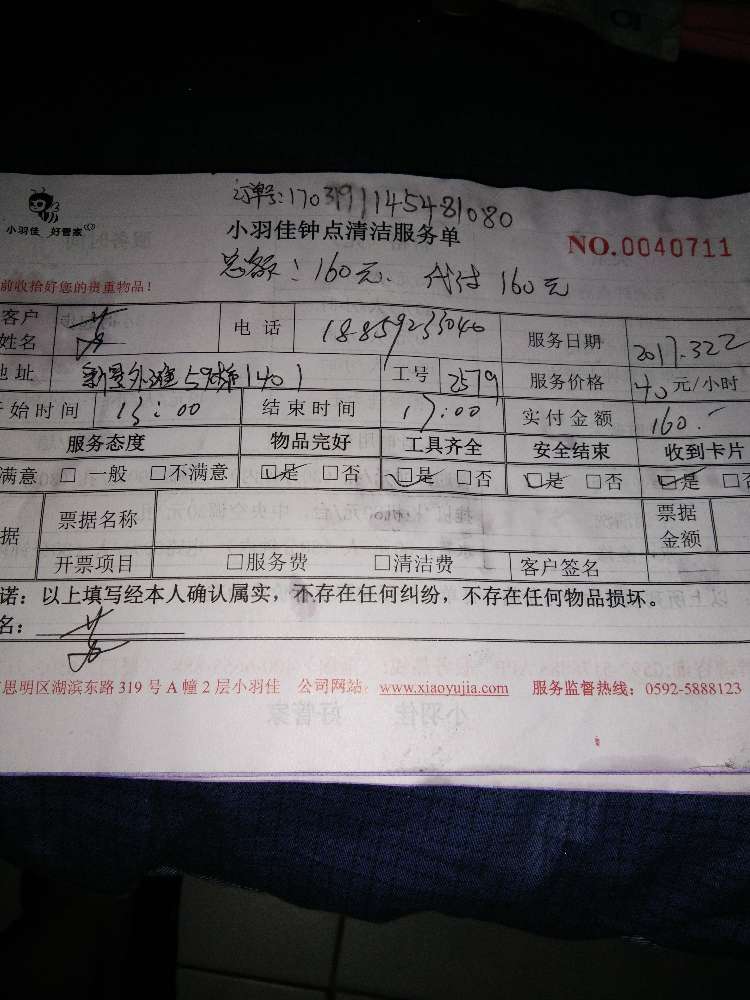 订单号:17031911145481080
小羽佳 好管家
小羽佳钟点清洁服务单
NO.0040711
总额:160元. 代付 160元
前收拾好您的贵重物品!
客户姓名 电话 18859233040 服务日期 2017.3.22
地址 外滩 1401 工号 2579 服务价格 40元/小时
开始时间 13:00 结束时间 17:00 实付金额 160.-
服务态度 物品完好 工具齐全 安全结束 收到卡片
满意 □一般 □不满意 ☑是 □否 ☑是 □否 ☑是 □否 ☑是 □否
据 票据名称 票据金额
开票项目 □服务费 □清洁费 客户签名
诺:以上填写经本人确认属实,不存在任何纠纷,不存在任何物品损坏。
名:
思明区湖滨东路 319 号 A 幢 2 层小羽佳 公司网站:www.xiaoyujia.com 服务监督热线:0592-5888123